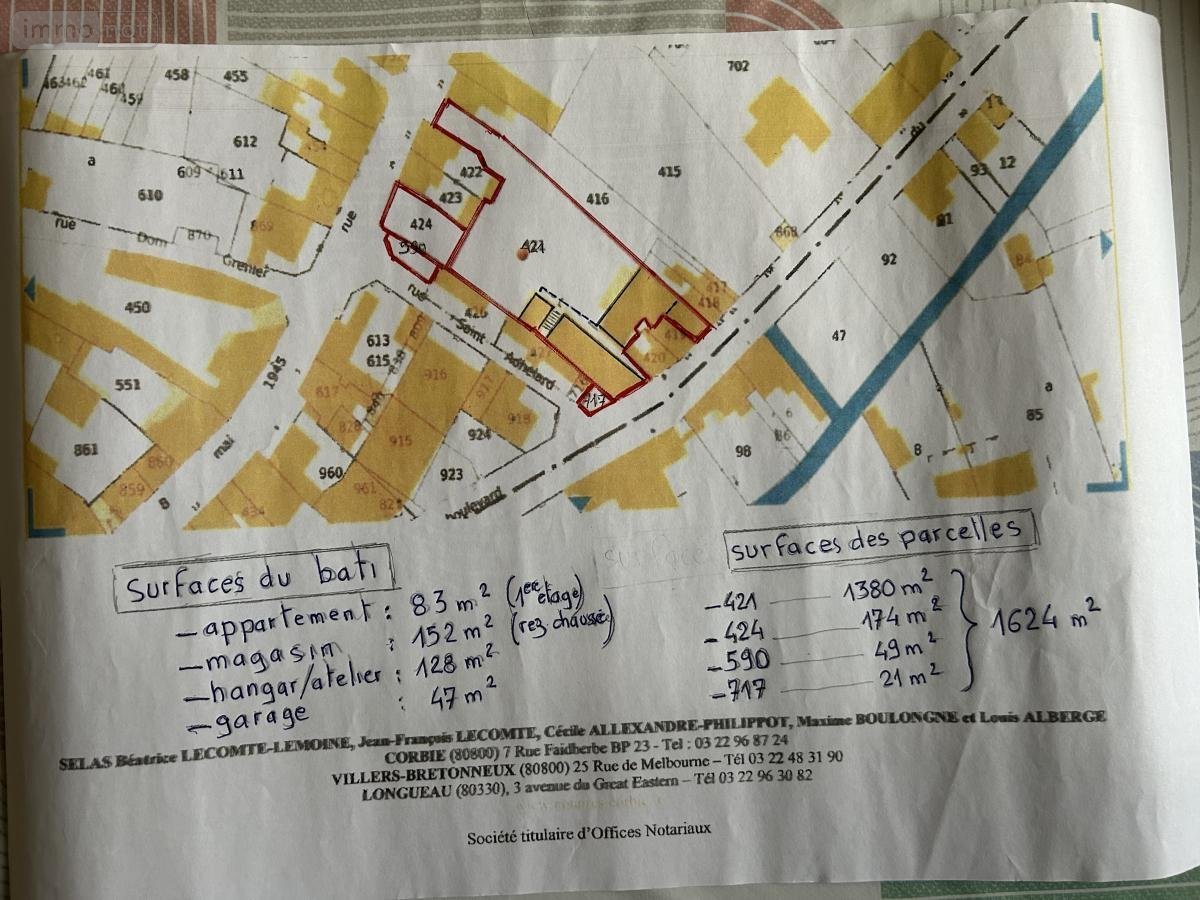 immo not
463 462 461 460 459 458 455
702
612
a
609 611
610
rue
Dom 870
Grenier
869
rue
422
423
424
590
421
416
415
668
93 12
81
92
84
47
450
rue
426
Saint
Adhélard
417
418
419
420
717
613
615
838
551
1945
617
916
917
918
828
915
924
861
860
859
mai
8
960
961
923
Boulevard
98
6
86
a
85
8
Surfaces du bati
- appartement : 83 m² (1ere étage)
- magasin : 152 m² (rez. chaussée)
- hangar/atelier : 128 m²
- garage : 47 m²
surface
surfaces des parcelles
- 421 1380 m²
- 424 174 m²
- 590 49 m²
- 717 21 m²
1624 m²
SELAS Béatrice LECOMTE-LEMOINE, Jean-François LECOMTE, Cécile ALLEXANDRE-PHILIPPOT, Maxime BOULONGNE et Louis ALBERGE
CORBIE (80800) 7 Rue Faidherbe BP 23 - Tel : 03 22 96 87 24
VILLERS-BRETONNEUX (80800) 25 Rue de Melbourne – Tél 03 22 48 31 90
LONGUEAU (80330), 3 avenue du Great Eastern – Tél 03 22 96 30 82
Société titulaire d'Offices Notariaux